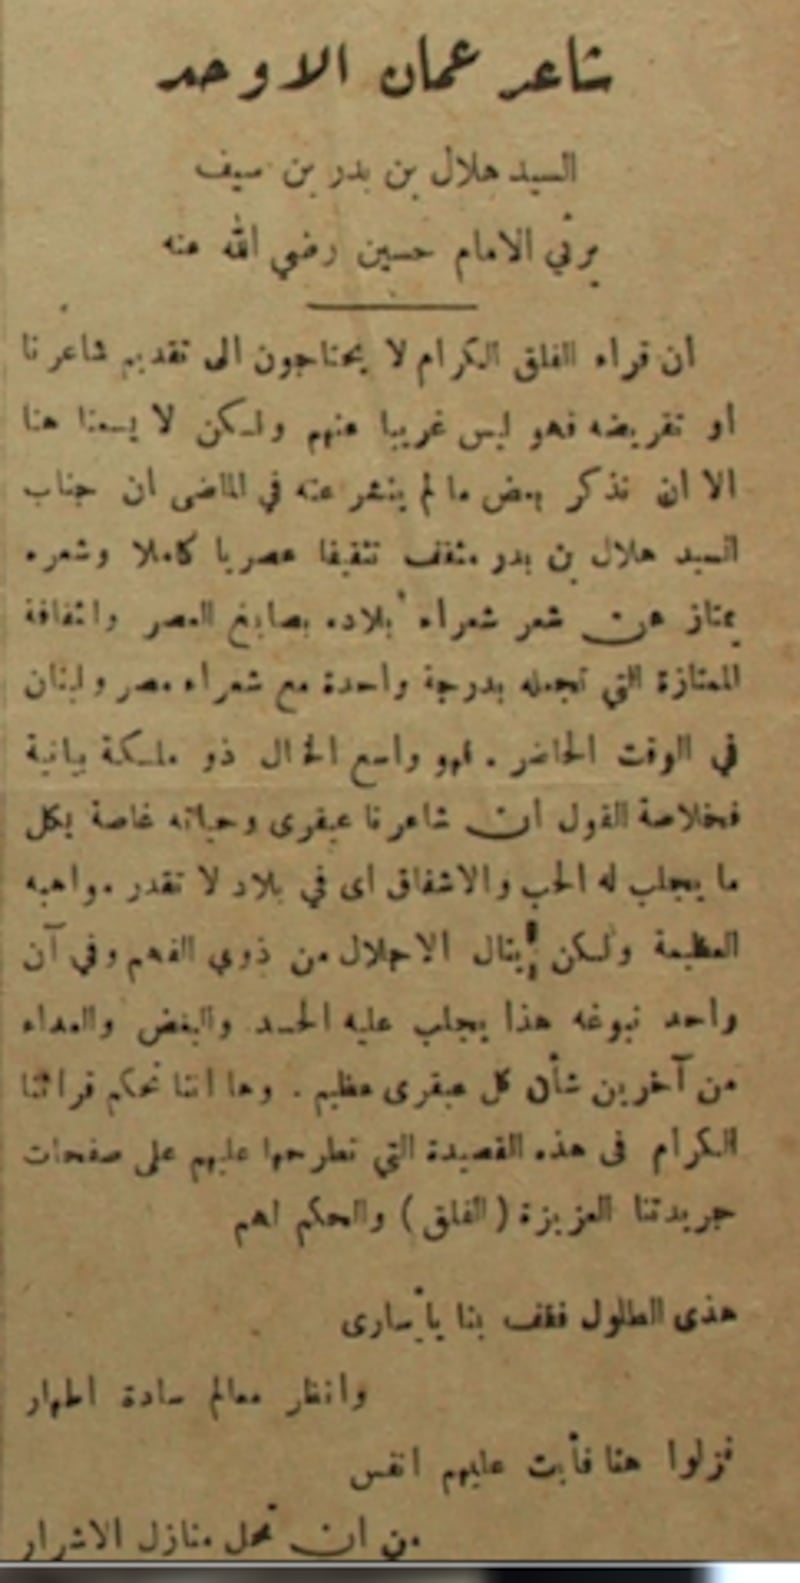 شاعر عمان الاوحد
السيد هلال بن بدر بن سيف
يرثي الامام حسين رضي الله عنه
ان قراء الفلق الكرام لا يحتاجون الى تقديم شاعرنا
او تقريضه فهو ليس غريبا عنهم ولكن لا يسعنا هنا
الا ان نذكر بعض ما لم ينشر عنه في الماضى ان جناب
السيد هلال بن بدر مثقف تثقيفا عصريا كاملا وشعره
يمتاز عن شعر شعراء بلاده بصابغ العصر والثقافة
الممتازة التي تجعله بدرجة واحدة مع شعراء مصر ولبنان
في الوقت الحاضر . فهو واسع الخال ذو ملكة بيانية
فخلاصة القول ان شاعرنا عبقرى وحياته غاصة بكل
ما يجلب له الحب والاشفاق اى في بلاد لا تقدر مواهبه
العظيمة ولكن ينال الاجلال من ذوي الفهم وفي آن
واحد نبوغه هذا يجلب عليه الحسد والبغض والعداء
من آخرين شأن كل عبقرى عظيم . وها اننا نحكم قرائنا
الكرام فى هذه القصيدة التي نطرحها عليهم على صفحات
جريدتنا العزيزة (الفلق) والحكم لهم
هذى الطلول فقف بنا يا سارى
وانظر معالم سادة اطهار
نزلوا هنا فأبت عليهم انفس
من ان تحل منازل الاشرار